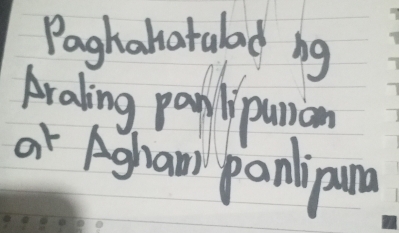 Pagkakatulad ng
Araling panlipunan
at Agham panlipuna